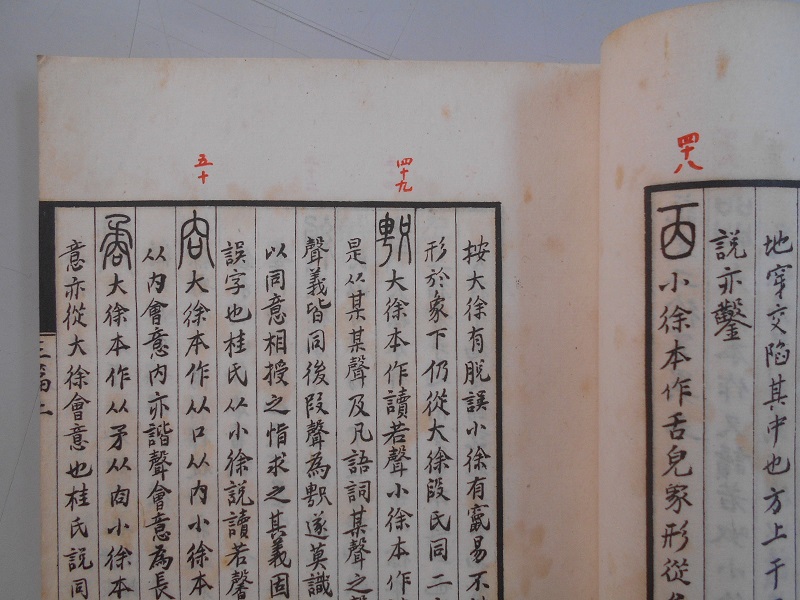 四十八
地穿交陷其中也方上干
說亦鑿
㐁小徐本作舌皃象形從
四十九
五十
按大徐有脫誤小徐有竄易不
形於象下仍從大徐段氏同二
大徐本作讀若聲小徐本作
是从某某聲及凡語詞某聲之
聲義皆同後叚聲為遂莫識
以同意相授之恉求之其義固
誤字也桂氏从小徐說讀若馨
㕯大徐本作从口从內小徐本
从內會意內亦諧聲會意為長
矞大徐本作从矛从㕯小徐本
意亦從大徐會意也桂氏說同
三篇上